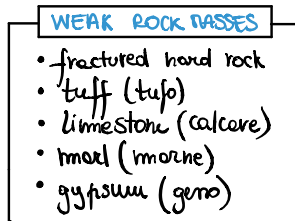 WEAK ROCK MASSES
• fractured hard rock
• tuff (tufo)
• limestone (calcare)
• marl (marne)
• gypsum (geno)